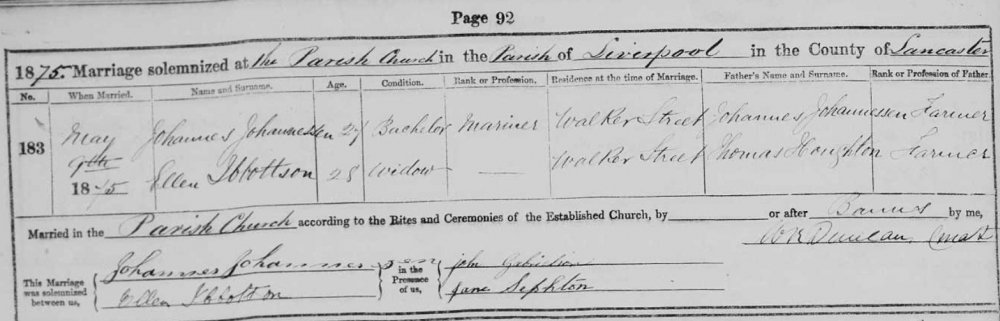 Page 92
1875. Marriage solemnized at the Parish Church in the Parish of Liverpool in the County of Lancaster
No. When Married. Name and Surname. Age. Condition. Rank or Profession. Residence at the time of Marriage. Father's Name and Surname. Rank or Profession of Father.
183 May 9th 1875 Johannes Johannessen 27 Bachelor Mariner Walker Street Johannes Johannessen Farmer
Ellen Ibbottson 28 Widow — Walker Street Thomas Houghton Farmer
Married in the Parish Church according to the Rites and Ceremonies of the Established Church, by or after Banns by me,
Duncan, Curate
This Marriage was solemnized between us, Johannes Johannessen in the Presence of us, John
Ellen Ibbotton Jane Sephton